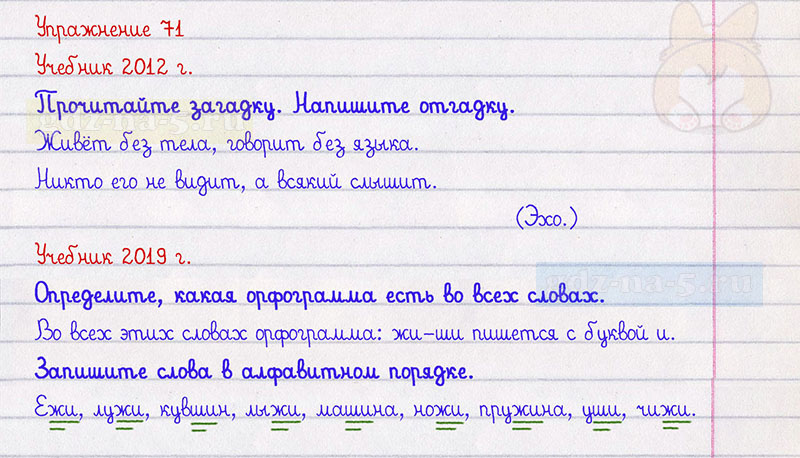 Упражнение 71
Учебник 2012 г.
Прочитайте загадку. Напишите отгадку.
Живёт без тела, говорит без языка.
Никто его не видит, а всякий слышит.
(Эхо.)
Учебник 2019 г.
gdz-na-5.ru
Определите, какая орфограмма есть во всех словах.
Во всех этих словах орфограмма: жи-ши пишется с буквой и.
Запишите слова в алфавитном порядке.
Ежи, лужи, кувшин, лыжи, машина, ножи, пружина, уши, чижи.